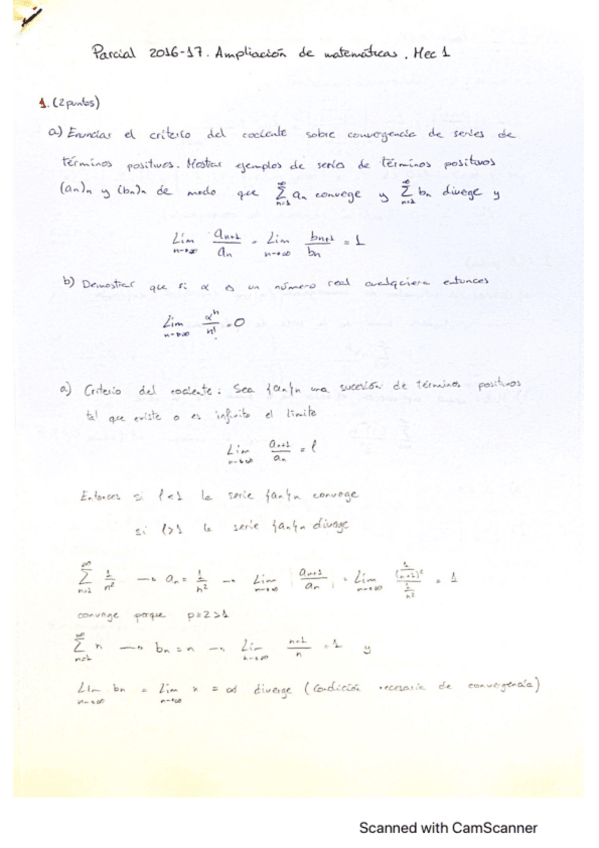 Parcial 2016-17. Ampliación de matemáticas. Mec 1
1. (2 puntos)
a) Enuncias el criterio del cociente sobre convergencia de series de
términos positivos. Mostrar ejemplos de series de términos positivos
(an)n y (bn)n de modo que ∑_{n=1}^{∞} an converge y ∑_{n=1}^{∞} bn diverge y
Lim_{n→∞} a_{n+1}/a_n = Lim_{n→∞} b_{n+1}/b_n = 1
b) Demostrar que si α es un número real cualquiera entonces
Lim_{n→∞} α^n/n! = 0
a) Criterio del cociente: Sea {an}n una sucesión de términos positivos
tal que existe o es infinito el límite
Lim_{n→∞} a_{n+1}/a_n = l
Entonces si l<1 la serie {an}n converge
si l>1 la serie {an}n diverge
∑_{n=1}^{∞} 1/n² → an = 1/n² → Lim_{n→∞} a_{n+1}/a_n = Lim_{n→∞} (1/(n+1)²)/(1/n²) = 1
converge porque p=2>1
∑_{n=1}^{∞} n → bn = n → Lim_{n→∞} (n+1)/n = 1 y
Lim_{n→∞} bn = Lim_{n→∞} n = ∞ diverge (Condición necesaria de convergencia)
Scanned with CamScanner